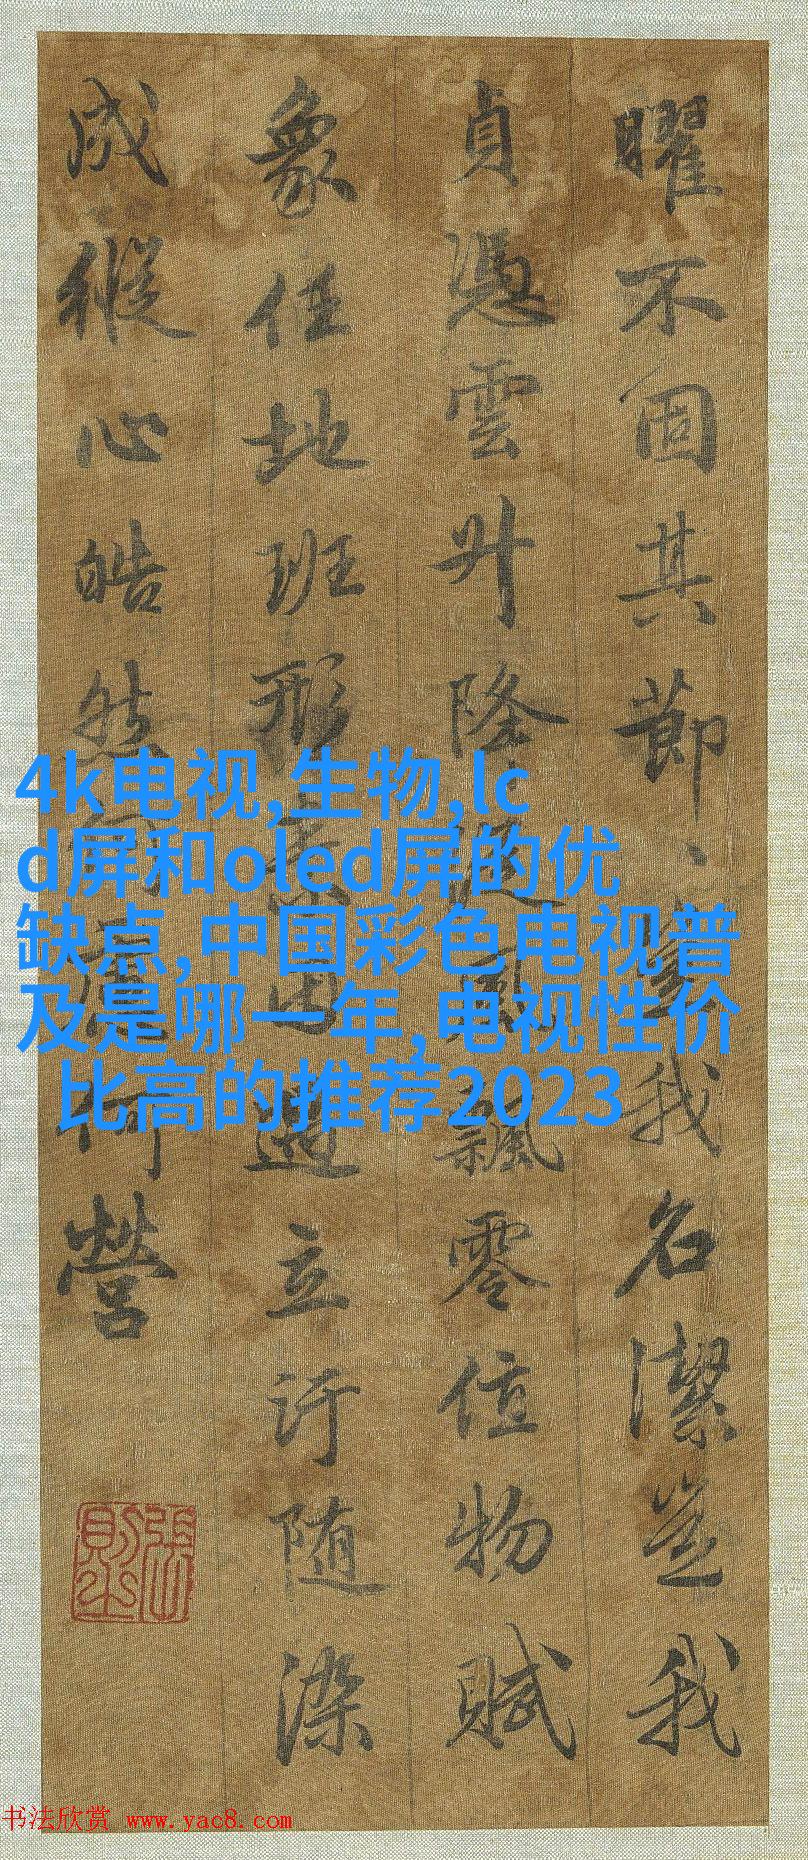 曜不固其節、豈我名潔豈我
貞憑雲升降從風飄零值物賦
象任地班形素因遇立汙随染
成縱心皓然何慮何營
張則之
4k电视,生物,lc
d屏和oled屏的优
缺点,中国彩色电视普
及是哪一年,电视性价
比高的推荐2023
书法欣赏 www.yac8.com